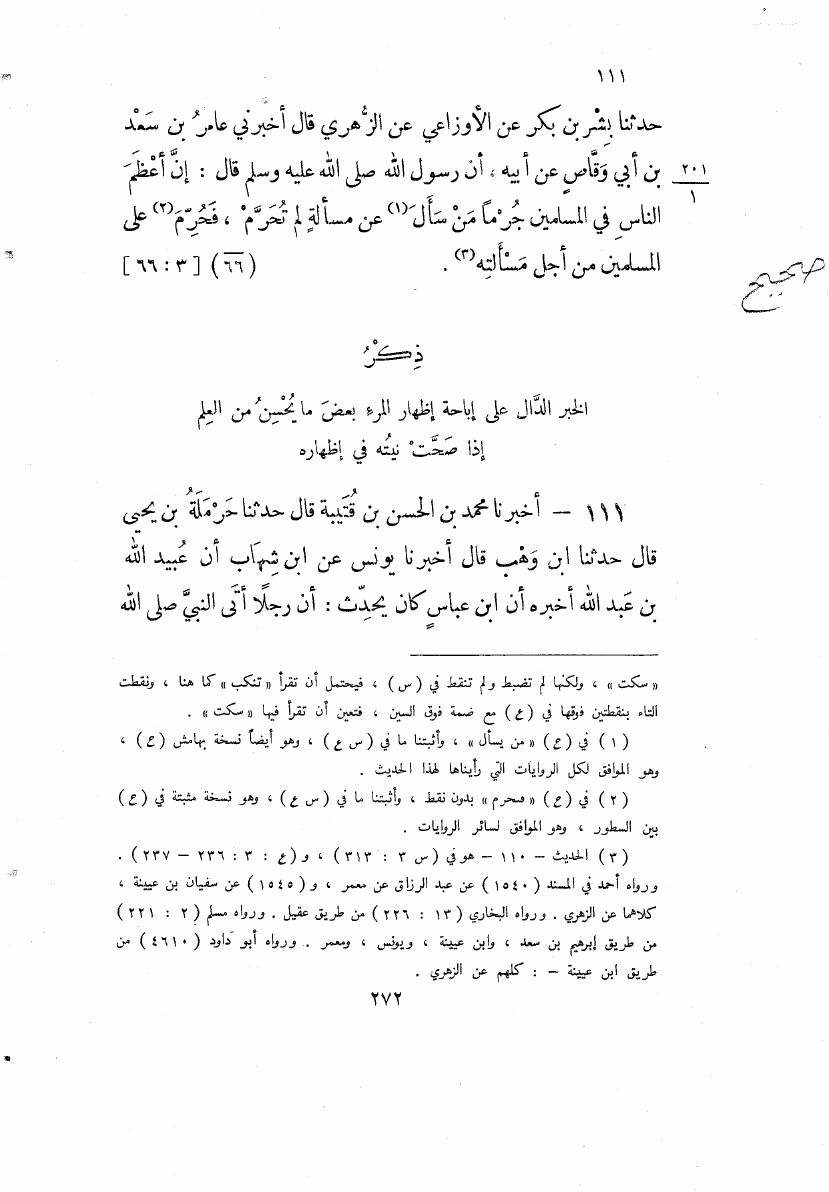 ١١١
حدثنا بِشْر بن بكر عن الأوزاعي عن الزُّهري قال أخبرني عامرُ بن سَعْد
بن أبي وَقَّاصٍ عن أبيه ، أن رسول الله صلى الله عليه وسلم قال : إنَّ أَعْظَمَ
٢٠١
١
الناسِ في المسلمين جُرْماً مَنْ سَأَلَ(١) عن مسألةٍ لم تُحَرَّمْ ، فَحُرِّمَ(٢) على
المسلمين من أجل مَسْأَلتِه(٣) . (٦٦) [ ٣ : ٦٦ ]
صحيح
ذِكْرُ
الخبر الدَّال على إباحة إظهار المرءِ بعضَ ما يُحْسِنُ من العِلم
إذا صَحَّتْ نيتُه في إظهاره
١١١ – أخبرنا محمد بن الحسن بن قُتَيبة قال حدثنا حَرْمَلَةُ بن يحيى
قال حدثنا ابن وَهْب قال أخبرنا يونس عن ابن شِهَاب أن عُبيد الله
بن عَبد الله أخبره أن ابن عباسٍ كان يحدِّث : أن رجلًا أتَى النبيَّ صلى الله
« سكت » ، ولكنها لم تضبط ولم تنقط في (س) ، فيحتمل أن تقرأ « تنكب » كما هنا ، ونقطت
التاء بنقطتين فوقها في (ع) مع ضمة فوق السين ، فتعين أن تقرأ فيها « سكت » .
(١) في (ع) « من يسأل » ، وأثبتنا ما في (س ع) ، وهو أيضاً نسخة بهامش (ع) ،
وهو الموافق لكل الروايات التي رأيناها لهذا الحديث .
(٢) في (ع) « محرم » بدون نقط ، وأثبتنا ما في (س ع) ، وهو نسخة مثبتة في (ع)
بين السطور ، وهو الموافق لسائر الروايات .
(٣) الحديث – ١١٠ – هو في (س ٣ : ٣١٣) ، و(ع : ٣ : ٢٣٦ – ٢٣٧) .
ورواه أحمد في المسند (١٥٤٠) عن عبد الرزاق عن معمر ، و (١٥٤٥) عن سفيان بن عيينة ،
كلاهما عن الزهري . ورواه البخاري (١٣ : ٢٢٦) من طريق عقيل . ورواه مسلم (٢ : ٢٢١)
من طريق إبرهيم بن سعد ، وابن عيينة ، ويونس ، ومعمر . ورواه أبو داود (٤٦١٠) من
طريق ابن عيينة – : كلهم عن الزهري .
٢٧٢